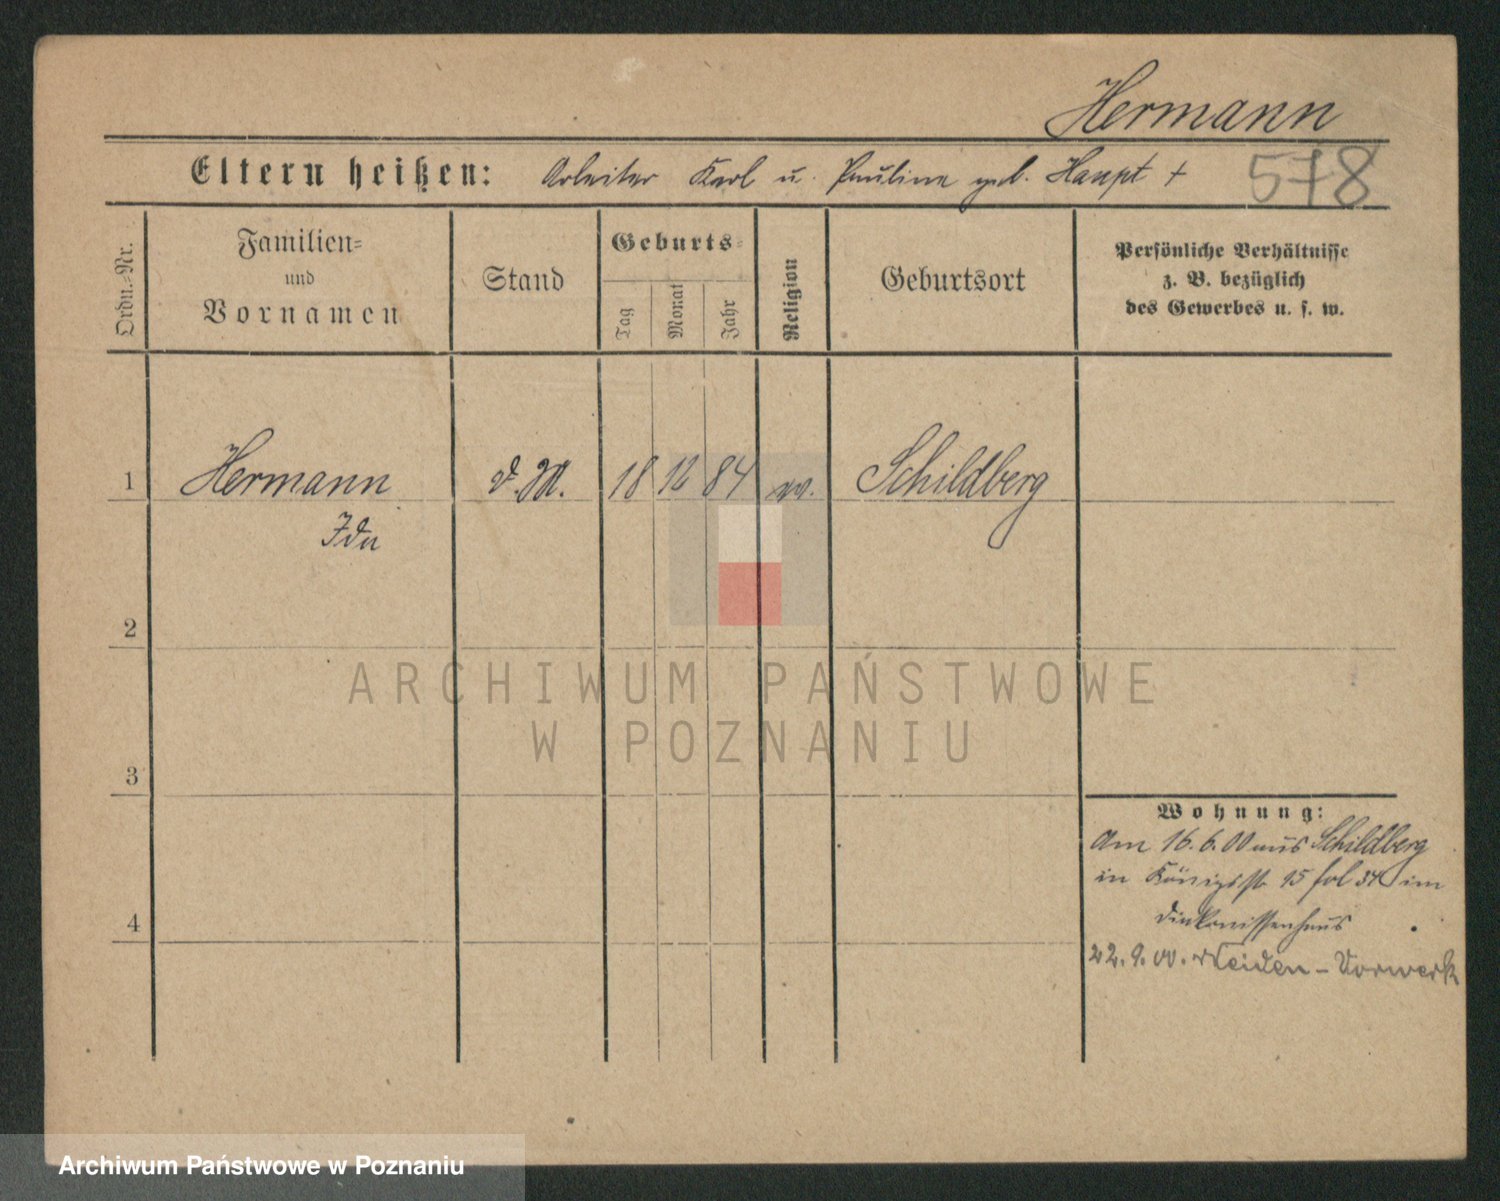 Hermann
Eltern heißen: Arbeiter Karl u. Pauline geb. Haupt +
578
Ordn.-Nr.
Familien-
und
Vornamen
Stand
Geburts-
Tag
Monat
Jahr
Religion
Geburtsort
Persönliche Verhältnisse
z. B. bezüglich
des Gewerbes u. s. w.
1 Hermann d. M. 18 12 84 Schildberg
Ida
2
ARCHIWUM PAŃSTWOWE
W POZNANIU
3
Wohnung:
Am 16. 6. 00 aus Schildberg
in Königstr 15 fol 34 im
Diakonissenhaus
4
22. 9. 00. Weiden-Vorwerk
Archiwum Państwowe w Poznaniu